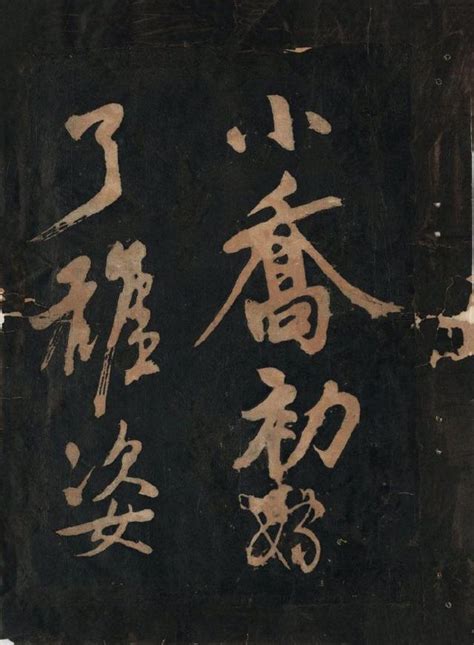 小喬初嫁
了雄姿